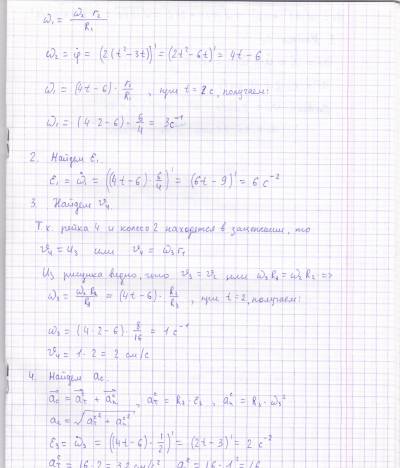 ω₁ = ω₂ r₂ / R₁
ω₂ = φ̇ = (2(t²-3t))' = (2t²-6t)' = 4t-6
ω₁ = (4t-6) · r₂/R₁ , при t=2с, получаем:
ω₁ = (4·2-6) · 6/4 = 3с⁻¹
2. Найдем ε₁
ε₁ = ω̇₁ = ((4t-6) · 6/4)' = (6t-9)' = 6 с⁻²
3. Найдем v₄
Т.к. рейка 4 и колесо 2 находятся в зацеплении, то
v₄ = u₃ или v₄ = ω₃ r₁
Из рисунка видно, что v₃ = v₂ или ω₃R₃ = ω₂R₂ =>
ω₃ = ω₂R₂/R₃ = (4t-6) · R₂/R₃ , при t=2, получаем:
ω₃ = (4·2-6) · 8/16 = 1с⁻¹
v₄ = 1·2 = 2 см/с
4. Найдем aс
aс = aτ + aп , aτс = R₃·ε₃ , aпс = R₃·ω₃²
aс = √(aτс² + aпс²)
ε₃ = ω̇₃ = ((4t-6) · 1/2)' = (2t-3)' = 2 с⁻²
aτс = 16·2 = 32 см/с² aпс = 16·1² = 16